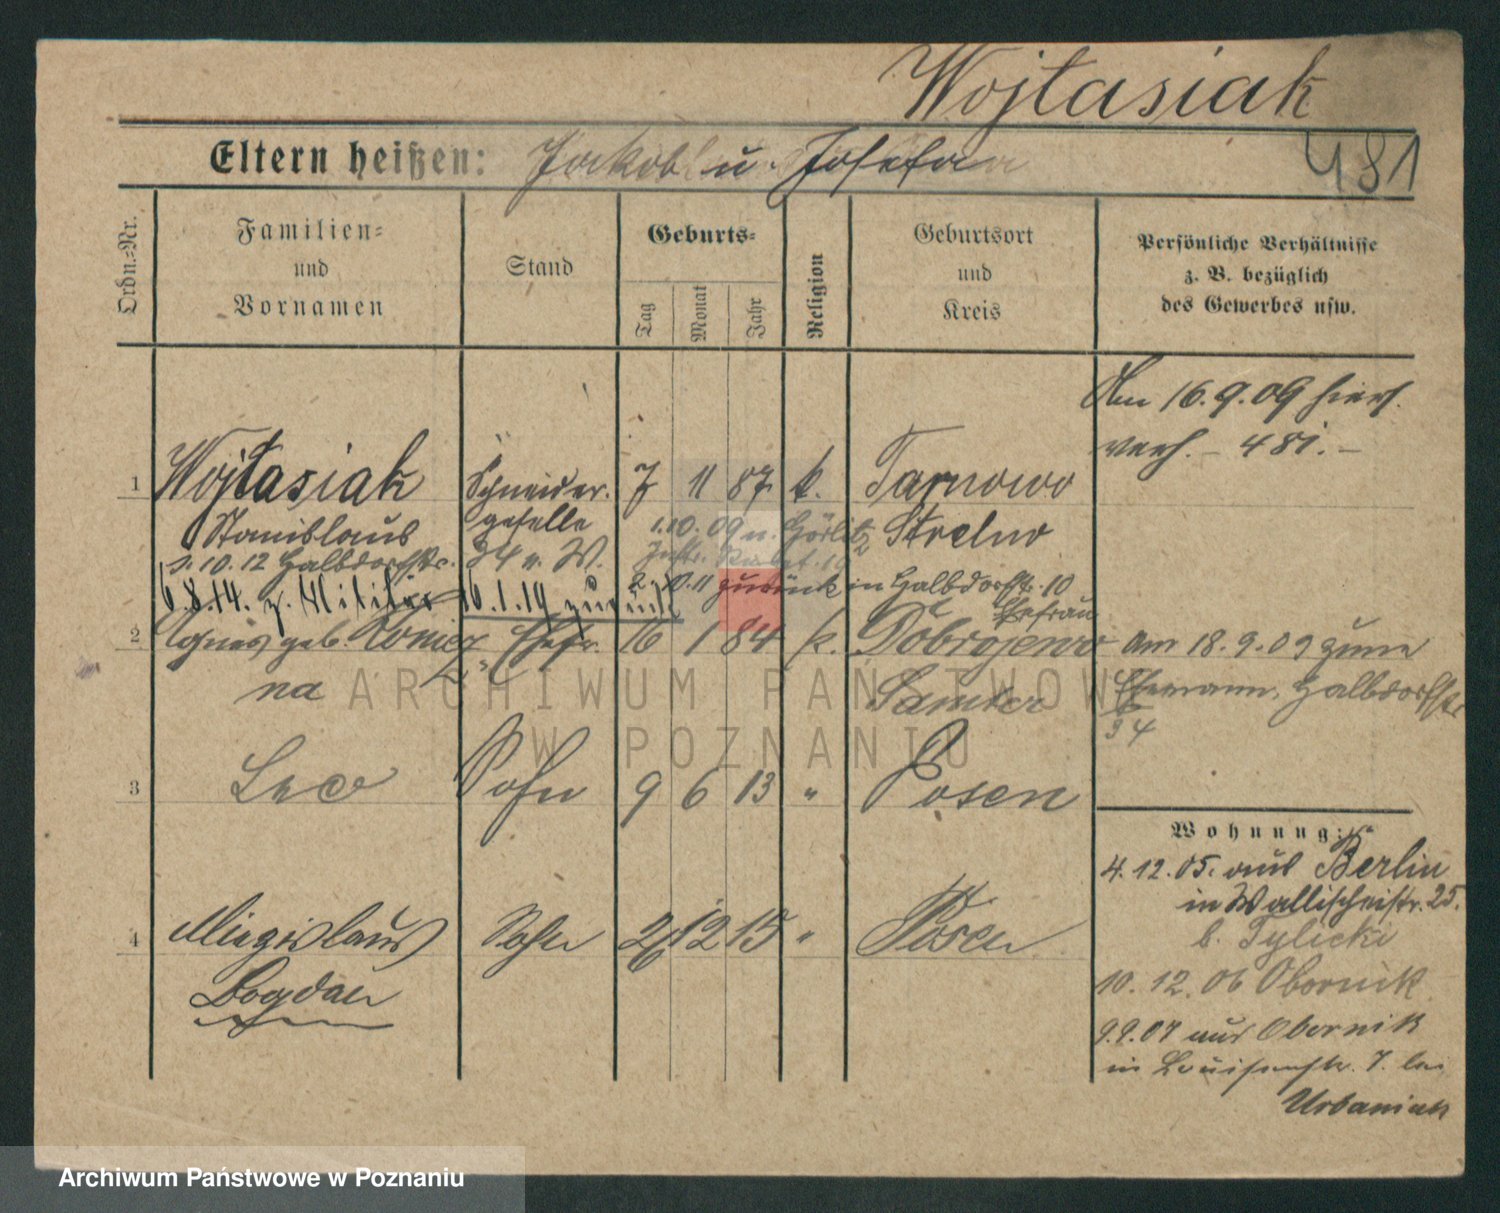 Wojtasiak
Eltern heißen: Jakob u. Josefa
481
Ordn.-Nr.
Familien-
und
Vornamen
Stand
Geburts-
Tag
Monat
Jahr
Religion
Geburtsort
und
Kreis
Persönliche Verhältnisse
z. B. bezüglich
des Gewerbes usw.
Am 16.9.09 hiers.
verh. – 481. –
1 Wojtasiak Schneider- 7 11 87 k. Tarnowo
Stanislaus geselle 1.10.09 n. Görlitz Strelno
1.10.12 Halbdorfstr. 34 n. W.
2.10.11 zurück in Halbdorfstr. 10
6.8.14. z. Militär 16.1.19 zurück
Ehefrau
2 Agnes geb. Koniecz- Ehefr. 16 1 84 k. Dobrojewo
na Samter
Am 18.9.09 zum
Ehemann, Halbdorfstr.
34
3 Leo Sohn 9 6 13 " Posen
4 Miezislaus Sohn 26 12 15 " Posen
Bogdan
Wohnung:
4.12.05. aus Berlin
in Wallischeistr. 25.
b. Tylicki
10.12.06 Obornik
9.9.07 aus Obornik
in Louisenstr. 7. bei
Urbaniak
ARCHIWUM PAŃSTWOWE
W POZNANIU
Archiwum Państwowe w Poznaniu